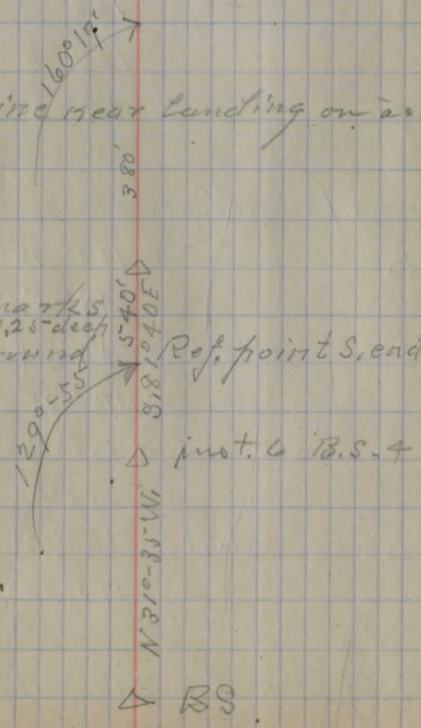 160° 17'
ine near landing on as
380'
marks
1,25 deep
round
540'
S. 81° 40 E
Ref. point S. end
129°-55'
inst. 6 B.S. 4
N 31°-35 W.
BS